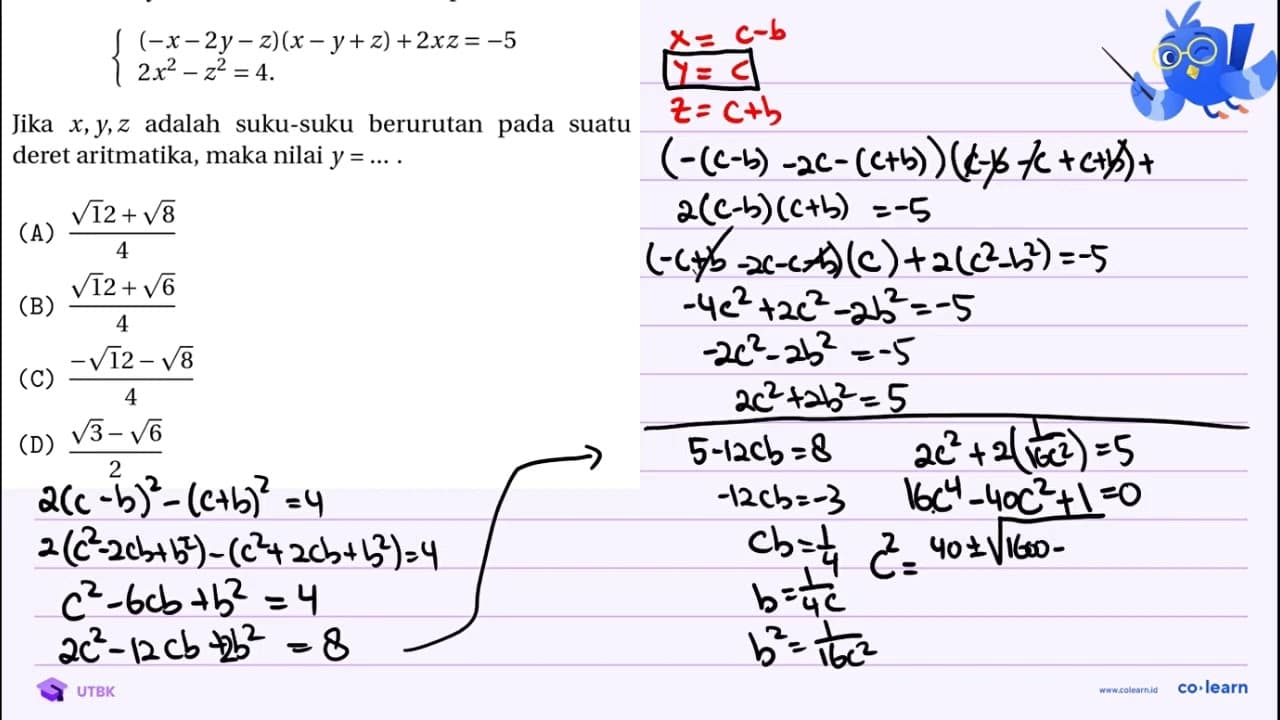 { (−x − 2y − z)(x − y + z) + 2xz = −5
2x² − z² = 4.
Jika x, y, z adalah suku-suku berurutan pada suatu
deret aritmatika, maka nilai y = ... .
(A) (√12 + √8)/4
(B) (√12 + √6)/4
(C) (−√12 − √8)/4
(D) (√3 − √6)/2
2(c-b)²-(c+b)²=4
2(c²-2cb+b²)-(c²+2cb+b²)=4
c²-6cb+b²=4
2c²-12cb+2b²=8
x= c-b
y= c
z= c+b
(-(c-b) -2c-(c+b))(c-b-c+c+b)+
2(c-b)(c+b) =-5
(-c+b-2c-c-b)(c)+2(c²-b²)=-5
-4c²+2c²-2b²=-5
-2c²-2b²=-5
2c²+2b²=5
5-12cb=8
-12cb=-3
cb=1/4
b=1/4c
b²=1/16c²
2c²+2(1/16c²)=5
16c⁴-40c²+1=0
c²= 40±√1600-
UTBK
www.colearn.id
co·learn